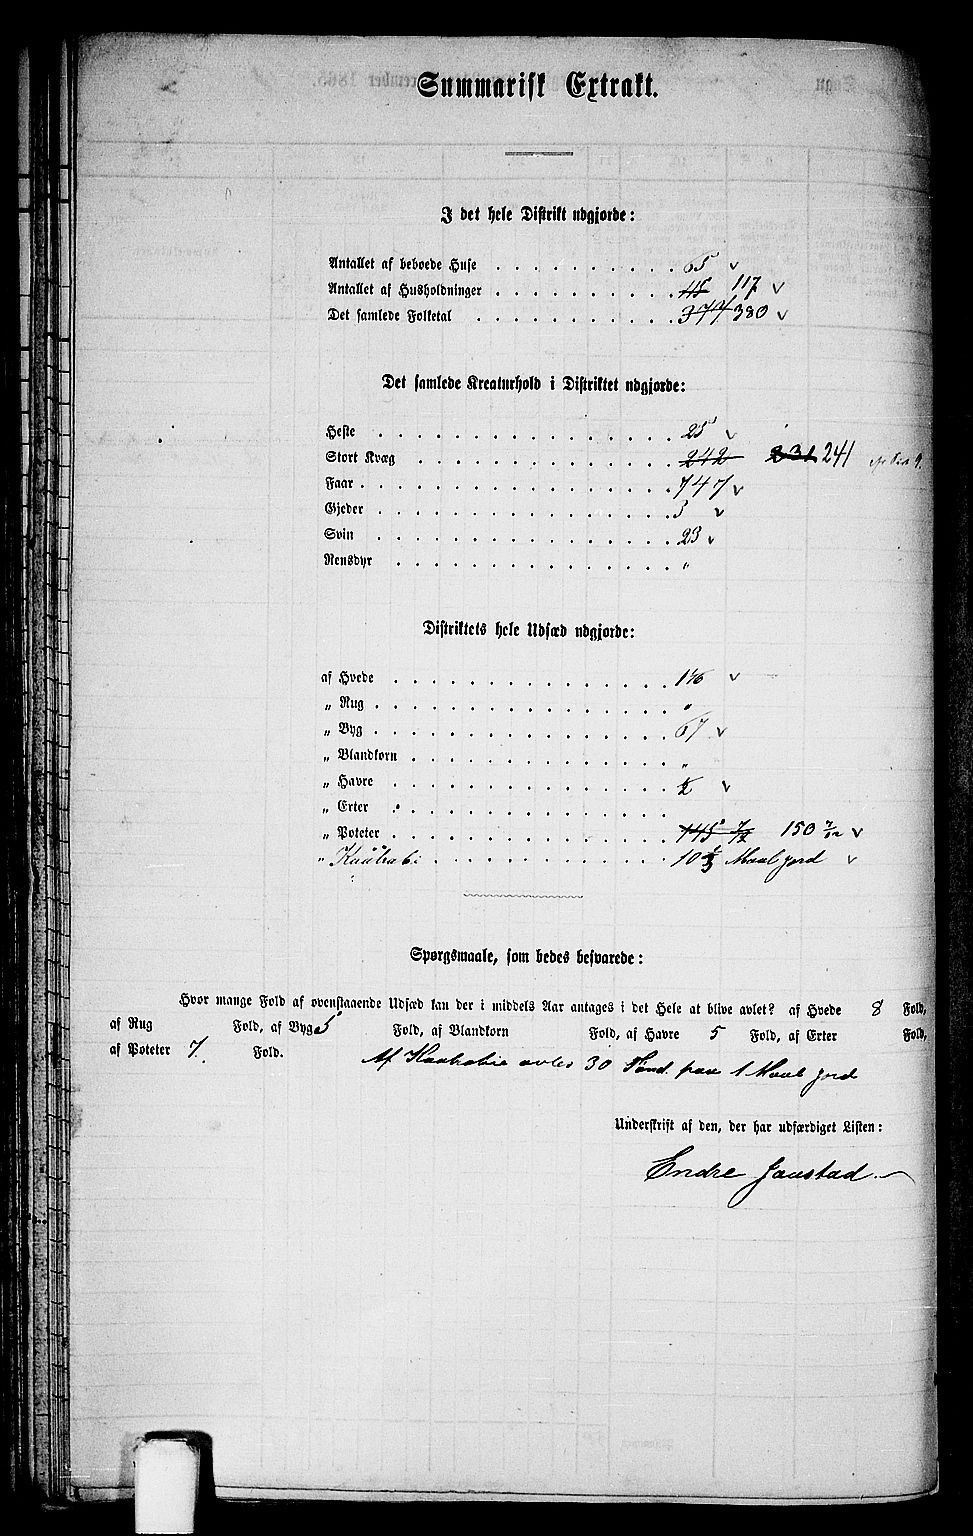 Summarisk Extrakt.
I det hele Distrikt udgjorde:
Antallet af beboede Huse . . . . . . . . . . 65 v
Antallet af Husholdninger . . . . . . . . . . 115 117 v
Det samlede Folketal . . . . . . . . . . . 377 380 v
Det samlede Kreaturhold i Distriktet udgjorde:
Heste . . . . . . . . . . . . . . . . 25 v
Stort Kvæg . . . . . . . . . . . . . . . 242 231 241
Faar . . . . . . . . . . . . . . . . . 747 v
Gjeder . . . . . . . . . . . . . . . . 3 v
Svin . . . . . . . . . . . . . . . . 23 v
Rensdyr . . . . . . . . . . . . . . . "
Distriktets hele Udsæd udgjorde:
af Hvede . . . . . . . . . . . . . . . v
„ Rug . . . . . . . . . . . . . . . . "
„ Byg . . . . . . . . . . . . . . . . 67 v
„ Blandkorn . . . . . . . . . . . . . . "
„ Havre . . . . . . . . . . . . . . . ½ v
„ Erter . . . . . . . . . . . . . . .
„ Poteter . . . . . . . . . . . . . . 145 7/12 150 7/12 v
„ Kaalrabi . . . . . . . . . . . . . 10 ⅓ Maal jord v
Spørgsmaale, som bedes besvarede:
Hvor mange Fold af ovenstaaende Udsæd kan der i middels Aar antages i det Hele at blive avlet? af Hvede 8 Fold,
af Rug Fold, af Byg 5 Fold, af Blandkorn Fold, af Havre 5 Fold, af Erter Fold,
af Poteter 7 Fold.
Af Kaalrabie avles 30 Tønd. paa 1 Maal jord
Underskrift af den, der har udfærdiget Listen:
Endre Jaastad